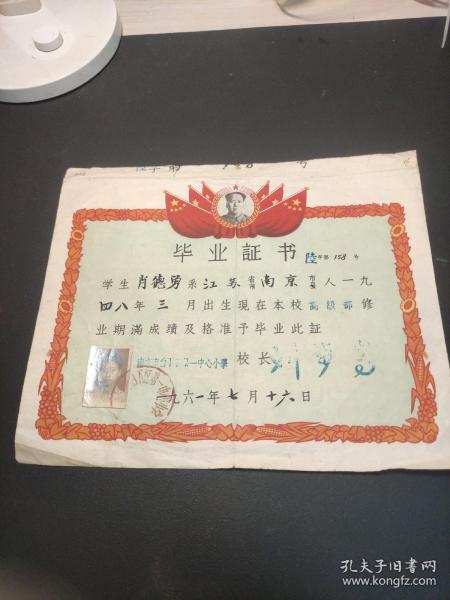 毕业証书
陸字第158号
学生肖德勇系江苏省市南京市县人一九
四八年三月出生現在本校高級部修
业期滿成績及格准予毕业此証
一中心小學 校长
一九六一年七月十六日
孔夫子旧书网
www.kongfz.com